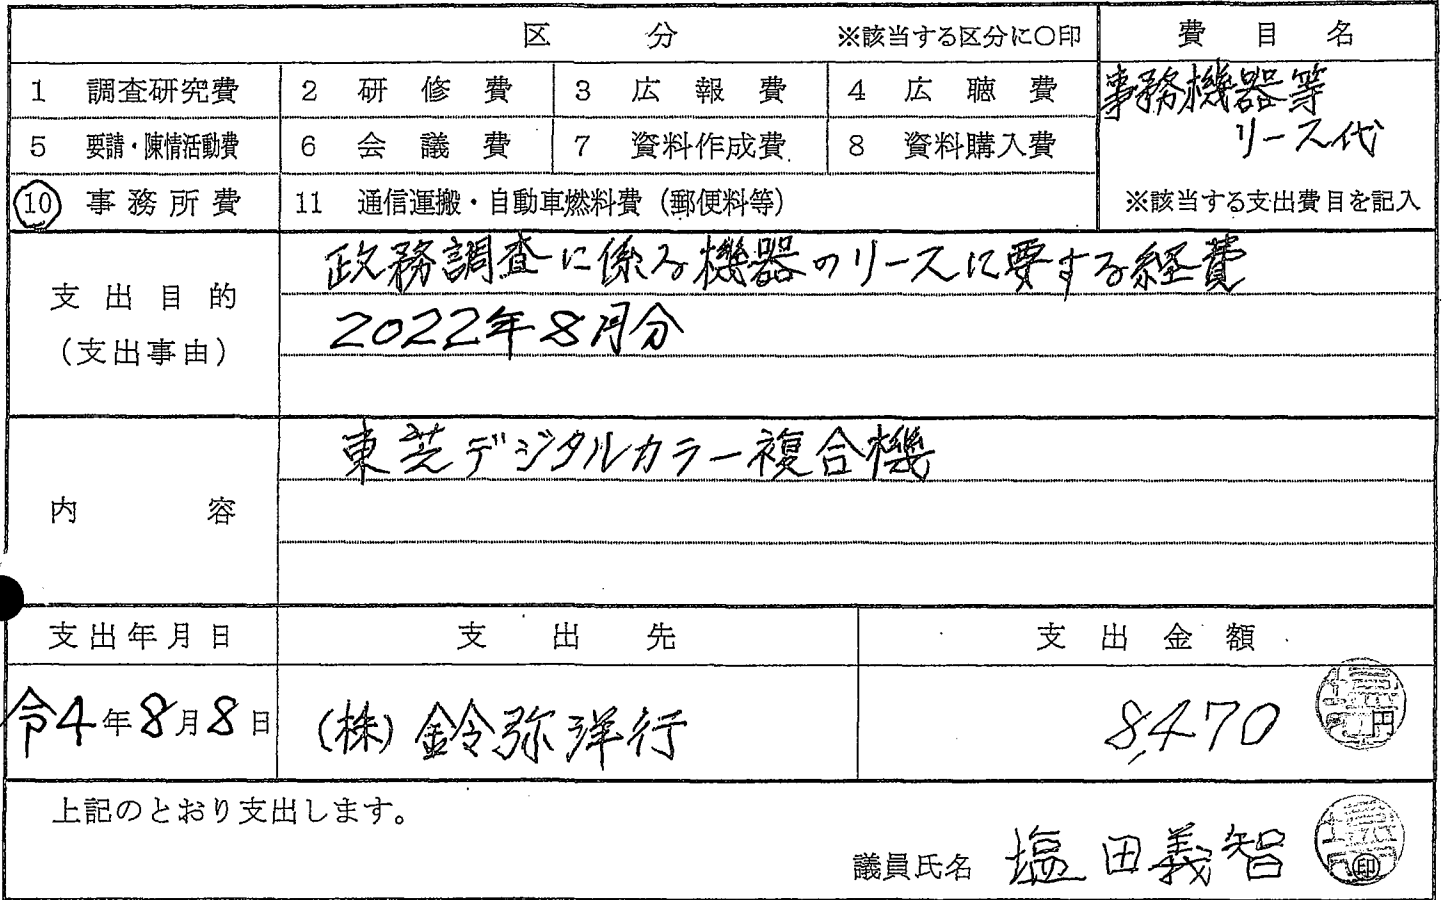 区分 ※該当する区分に○印 費目名
1 調査研究費 2 研修費 3 広報費 4 広聴費 事務機器等
5 要請・陳情活動費 6 会議費 7 資料作成費 8 資料購入費 リース代
10 事務所費 11 通信運搬・自動車燃料費（郵便料等） ※該当する支出費目を記入
支出目的
（支出事由）
政務調査に係る機器のリースに要する経費
2022年8月分
内容
東芝デジタルカラー複合機
支出年月日 支出先 支出金額
令4年8月8日 (株)鈴弥洋行 8,470 円
上記のとおり支出します。
議員氏名 塩田義智 印